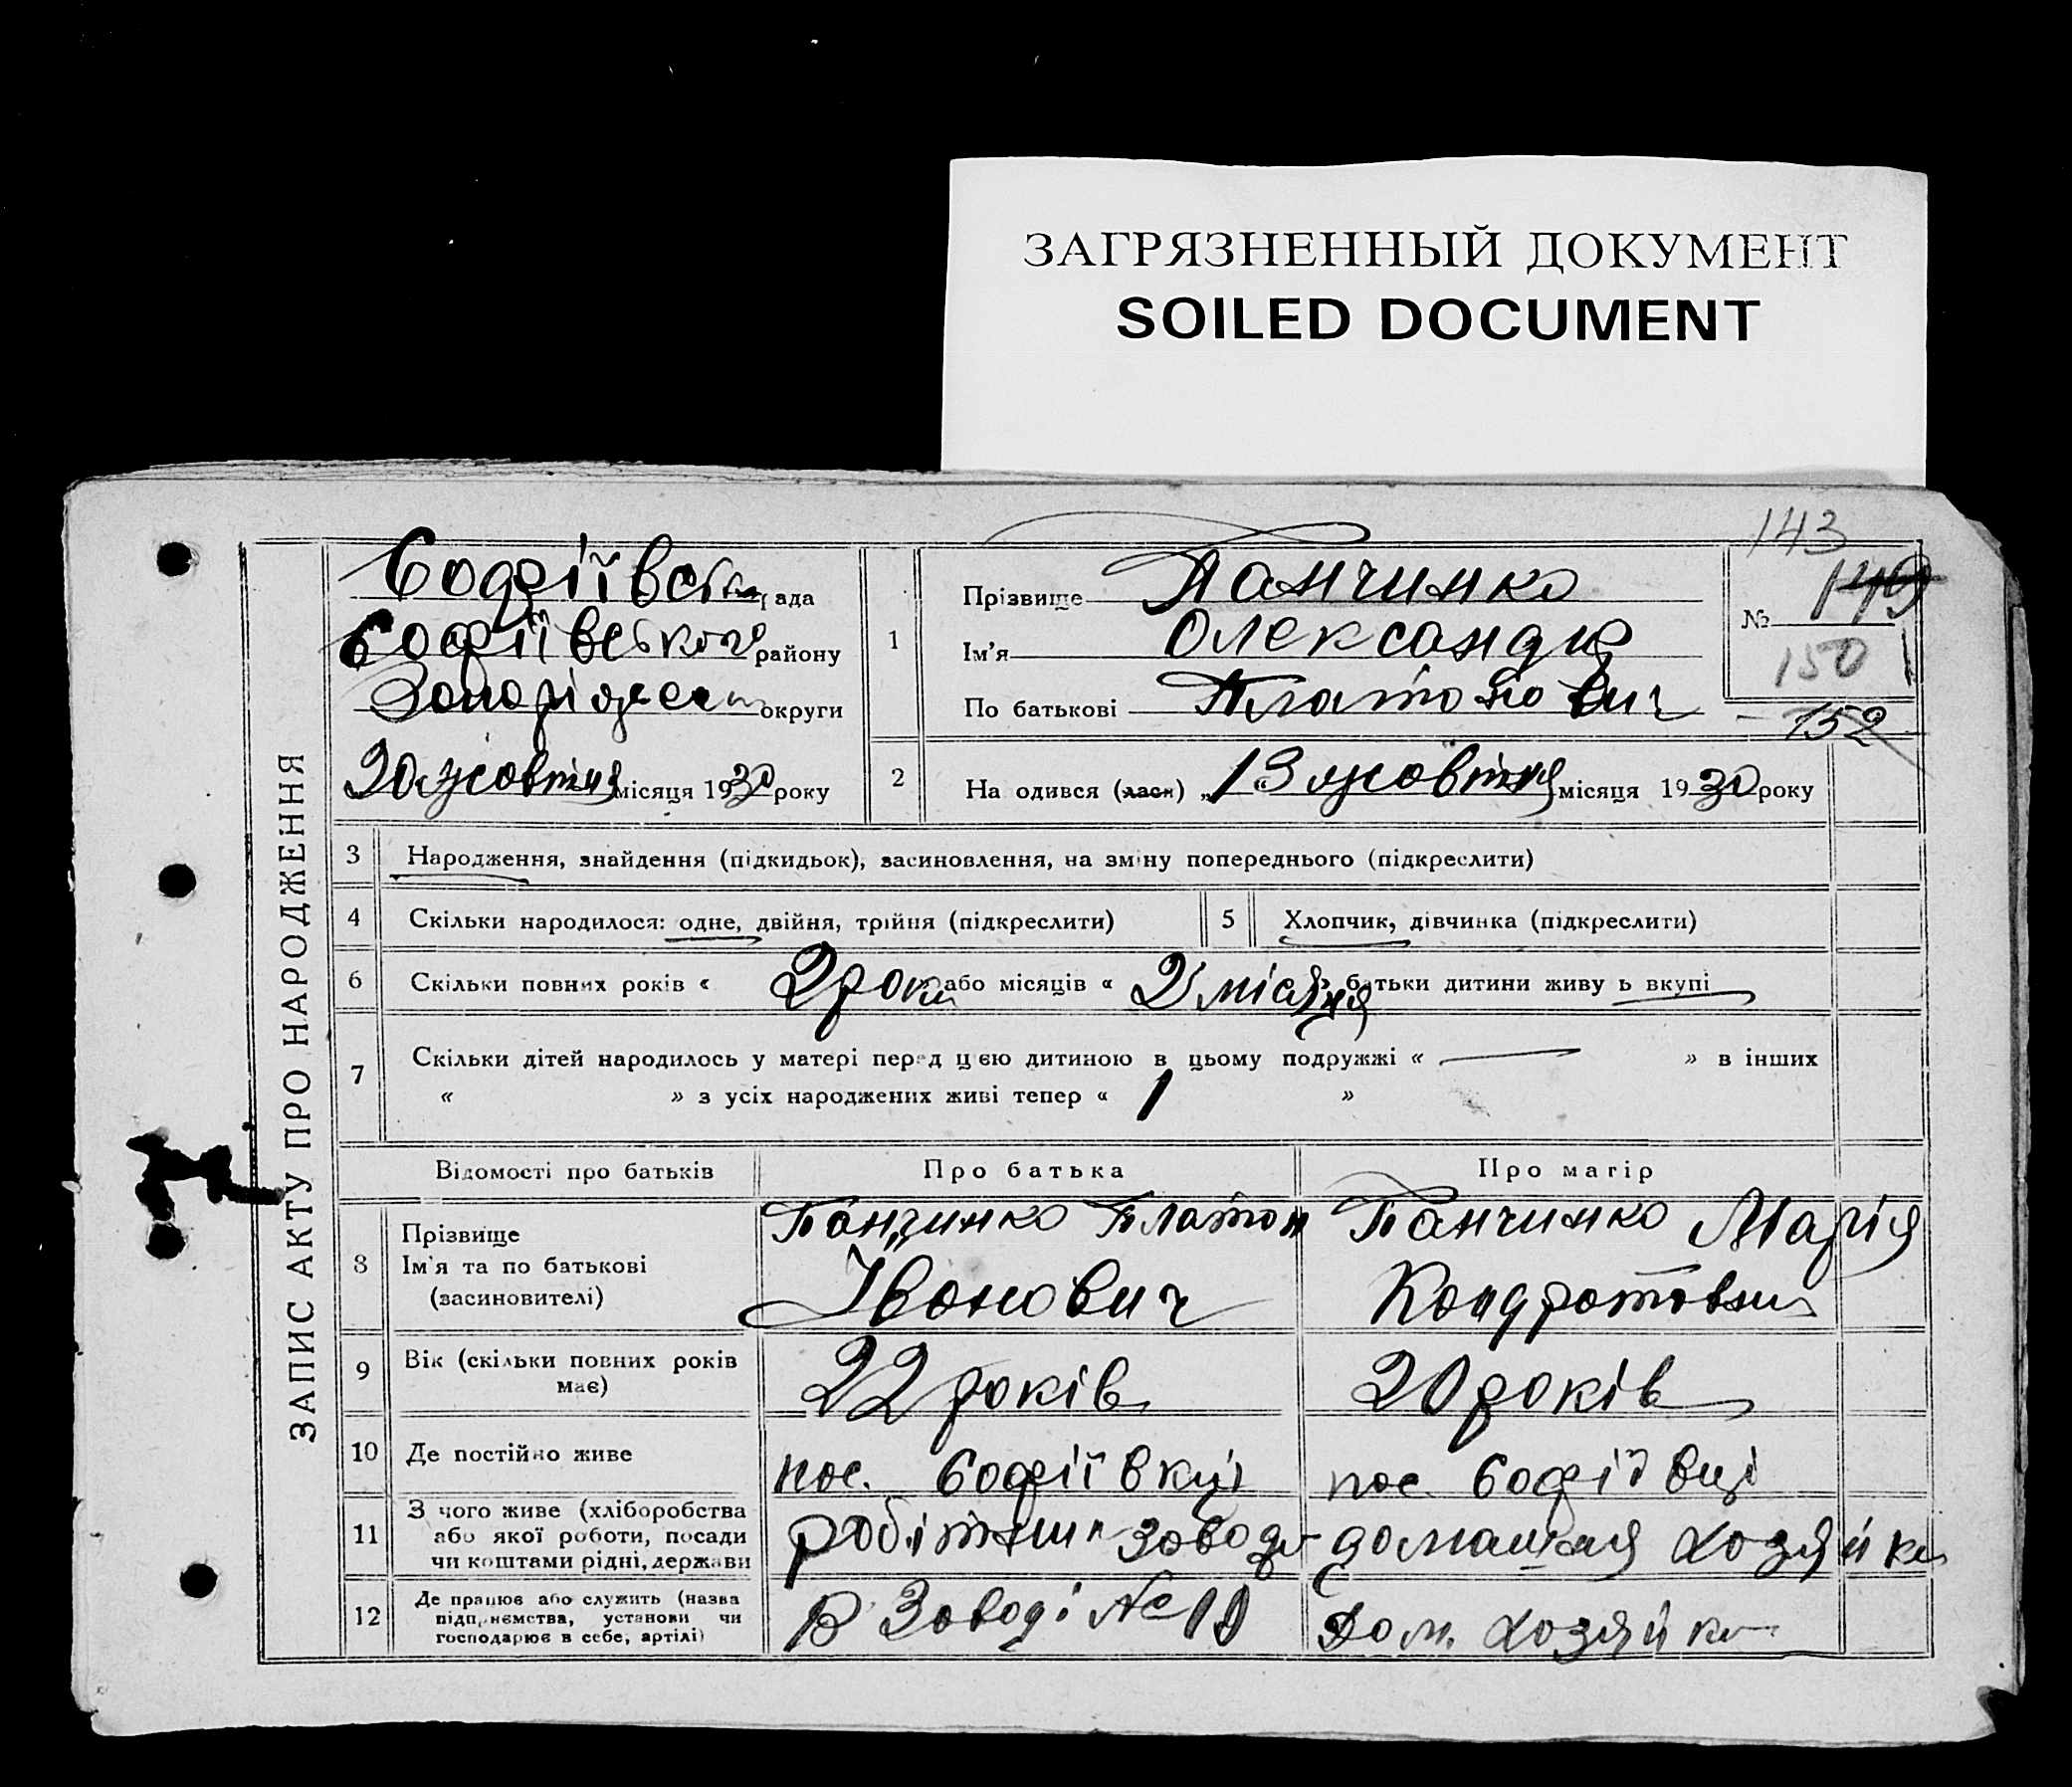 ЗАГРЯЗНЕННЫЙ ДОКУМЕНТ
SOILED DOCUMENT
143
ЗАПИС АКТУ ПРО НАРОДЖЕННЯ
Софіївська рада
Софіївського району
округи
20 жовтня місяця 1930 року
1
Прізвище Панчинко
Ім'я Олександр
По батькові Платонович
№ 149
150
152
2 На одився (лася) „13 жовтня місяця 1930 року
3 Народження, знайдення (підкидьок), засиновлення, на зміну попереднього (підкреслити)
4 Скільки народилося: одне, двійня, трійня (підкреслити)
5 Хлопчик, дівчинка (підкреслити)
6 Скільки повних років « 2 роки або місяців « 2 місяця батьки дитини живу ь вкупі
7 Скільки дітей народилось у матері перед цією дитиною в цьому подружжі « — » в інших
« » з усіх народжених живі тепер « 1 »
Відомості про батьків
Про батька
Про матір
8 Прізвище
Ім'я та по батькові
(засиновителі)
Панчинко Платон
Іванович
Панчинко Марія
Кондратовна
9 Вік (скільки повних років
має)
22 років
20 років
10 Де постійно живе
пос. Софіївкці
пос. Софіївці
11 З чого живе (хліборобства
або якої роботи, посади
чи коштами рідні, держави
робітник заводу
домашняя хозяйка
12 Де працює або служить (назва
підприємства, установи чи
господарює в себе, артілі)
В заводі №
Дом. хозяйка